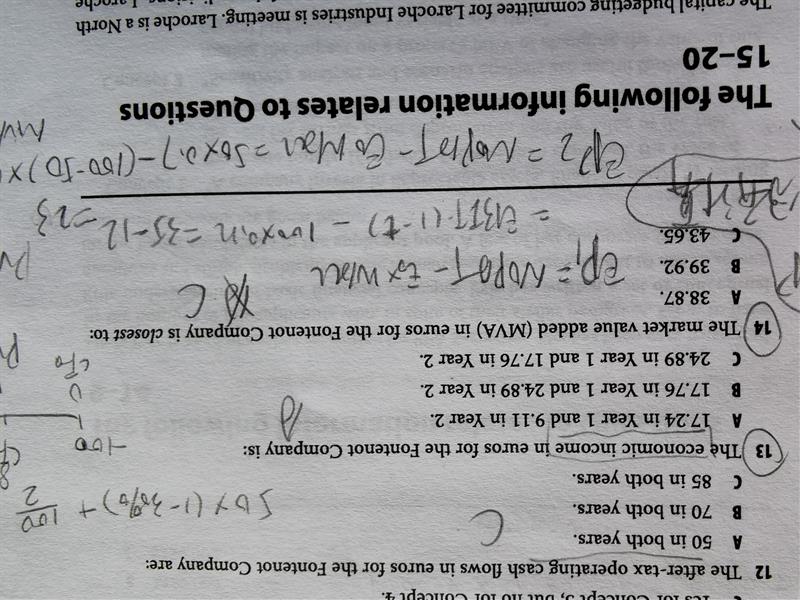 C Yes for Concept 3, but no for Concept 4.
12 The after-tax operating cash flows in euros for the Fontenot Company are:
A 50 in both years.
B 70 in both years. C
C 85 in both years. 50 × (1-30%) + 100/2
13 The economic income in euros for the Fontenot Company is: -100
A 17.24 in Year 1 and 9.11 in Year 2. A
B 17.76 in Year 1 and 24.89 in Year 2. 0
C 24.89 in Year 1 and 17.76 in Year 2. CF0
14 The market value added (MVA) in euros for the Fontenot Company is closest to:
A 38.87. C
B 39.92. EP1 = NOPAT -
C 43.65. = EBIT (1-t) - 100×0.12 = 35-12 = 23
EP2 = NOPAT - = 50×0.7 - (100-50) ×
The following information relates to Questions
15–20
The capital budgeting committee for Laroche Industries is meeting. Laroche is a North